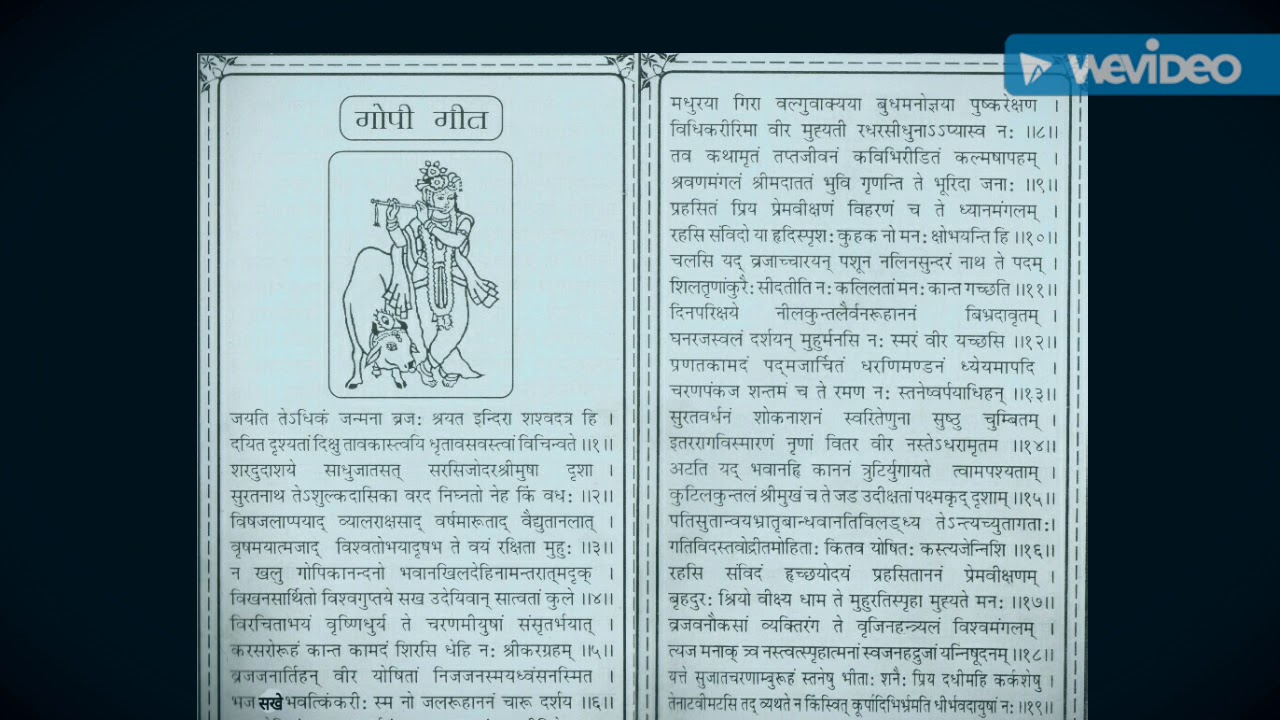 गोपी गीत
जयति तेऽधिकं जन्मना व्रजः श्रयत इन्दिरा शश्वदत्र हि ।
दयित दृश्यतां दिक्षु तावकास्त्वयि धृतावसवस्त्वां विचिन्वते ॥१॥
शरदुदाशये साधुजातसत् सरसिजोदरश्रीमुषा दृशा ।
सुरतनाथ तेऽशुल्कदासिका वरद निघ्नतो नेह किं वधः ॥२॥
विषजलाप्ययाद् व्यालराक्षसाद् वर्षमारूताद् वैद्युतानलात् ।
वृषमयात्मजाद् विश्वतोभयादृषभ ते वयं रक्षिता मुहुः ॥३॥
न खलु गोपिकानन्दनो भवानखिलदेहिनामन्तरात्मदृक् ।
विखनसार्थितो विश्वगुप्तये सख उदेयिवान् सात्वतां कुले ॥४॥
विरचिताभयं वृष्णिधुर्य ते चरणमीयुषां संसृतर्भयात् ।
करसरोरूहं कान्त कामदं शिरसि धेहि नः श्रीकरग्रहम् ॥५॥
व्रजजनार्तिहन् वीर योषितां निजजनस्मयध्वंसनस्मित ।
भज सखे भवत्किंकरीः स्म नो जलरूहाननं चारू दर्शय ॥६॥
मधुरया गिरा वल्गुवाक्यया बुधमनोज्ञया पुष्करेक्षण ।
विधिकरीरिमा वीर मुह्यती रधरसीधुनाऽऽप्यास्व नः ॥८॥
तव कथामृतं तप्तजीवनं कविभिरीडितं कल्मषापहम् ।
श्रवणमंगलं श्रीमदाततं भुवि गृणन्ति ते भूरिदा जनाः ॥९॥
प्रहसितं प्रिय प्रेमवीक्षणं विहरणं च ते ध्यानमंगलम् ।
रहसि संविदो या हृदिस्पृशः कुहक नो मनः क्षोभयन्ति हि ॥१०॥
चलसि यद् व्रजाच्चारयन् पशून नलिनसुन्दरं नाथ ते पदम् ।
शिलतृणांकुरैः सीदतीति नः कलिलतां मनः कान्त गच्छति ॥११॥
दिनपरिक्षये नीलकुन्तलैर्वनरूहाननं बिभ्रदावृतम् ।
घनरजस्वलं दर्शयन् मुहुर्मनसि नः स्मरं वीर यच्छसि ॥१२॥
प्रणतकामदं पद्मजार्चितं धरणिमण्डनं ध्येयमापदि ।
चरणपंकज शन्तमं च ते रमण नः स्तनेष्वर्पयाधिहन् ॥१३॥
सुरतवर्धनं शोकनाशनं स्वरितेणुना सुष्ठु चुम्बितम् ।
इतररागविस्मारणं नृणां वितर वीर नस्तेऽधरामृतम ॥१४॥
अटति यद् भवानहि काननं त्रुटिर्युगायते त्वामपश्यताम् ।
कुटिलकुन्तलं श्रीमुखं च ते जड उदीक्षतां पक्ष्मकृद् दृशाम् ॥१५॥
पतिसुतान्वयभ्रातृबान्धवानतिविलङ्ध्य तेऽन्त्यच्युतागताः।
गतिविदस्तवोद्रीतमोहिताः कितव योषितः कस्त्यजेन्निशि ॥१६॥
रहसि संविदं हृच्छयोदयं प्रहसिताननं प्रेमवीक्षणम् ।
बृहदुरः श्रियो वीक्ष्य धाम ते मुहुरतिस्पृहा मुह्यते मनः ॥१७॥
व्रजवनौकसां व्यक्तिरंग ते वृजिनहन्त्र्यलं विश्वमंगलम् ।
त्यज मनाक् त्र्व नस्त्वत्स्पृहात्मनां स्वजनहृद्रुजां यन्निषूदनम् ॥१८॥
यत्ते सुजातचरणाम्बुरूहं स्तनेषु भीताः शनैः प्रिय दधीमहि कर्कशेषु ।
तेनाटवीमटसि तद् व्यथते न किंस्वित् कूर्पादिभिर्भ्रमति धीर्भवदायुषां नः ॥१९॥
WEVIDEO